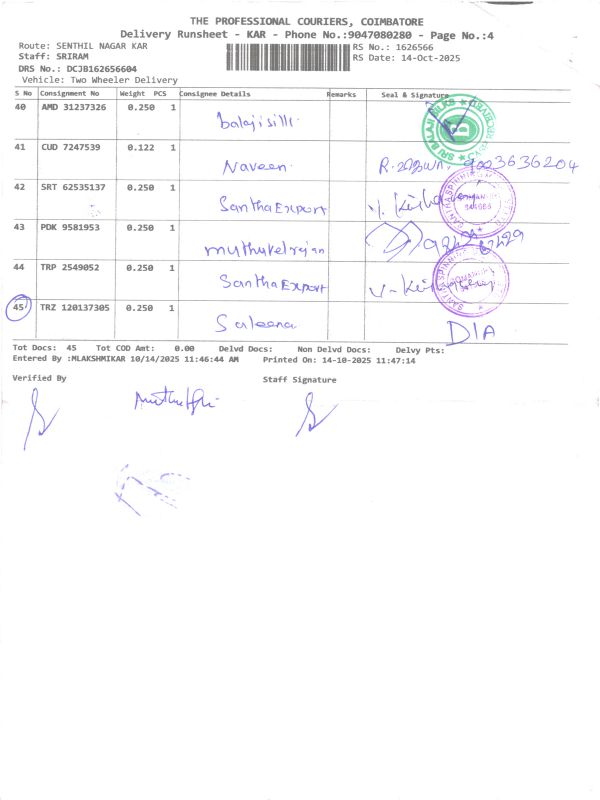 THE PROFESSIONAL COURIERS, COIMBATORE
Delivery Runsheet - KAR - Phone No.:9047080280 - Page No.:4
Route: SENTHIL NAGAR KAR
RS No.: 1626566
Staff: SRIRAM
RS Date: 14-Oct-2025
DRS No.: DCJB162656604
Vehicle: Two Wheeler Delivery
S No Consignment No Weight PCS Consignee Details Remarks Seal & Signature
40 AMD 31237326 0.250 1 SRI BALAJI SILKS
41 CUD 7247539 0.122 1 Naveen R. 9003636204
42 SRT 62535137 0.250 1 Santha Export
43 PDK 9581953 0.250 1
44 TRP 2549052 0.250 1 Santha Export
45 TRZ 120137305 0.250 1 Saleena DIA
Tot Docs: 45 Tot COD Amt: 0.00 Delvd Docs: Non Delvd Docs: Delvy Pts:
Entered By :MLAKSHMIKAR 10/14/2025 11:46:44 AM Printed On: 14-10-2025 11:47:14
Verified By Staff Signature